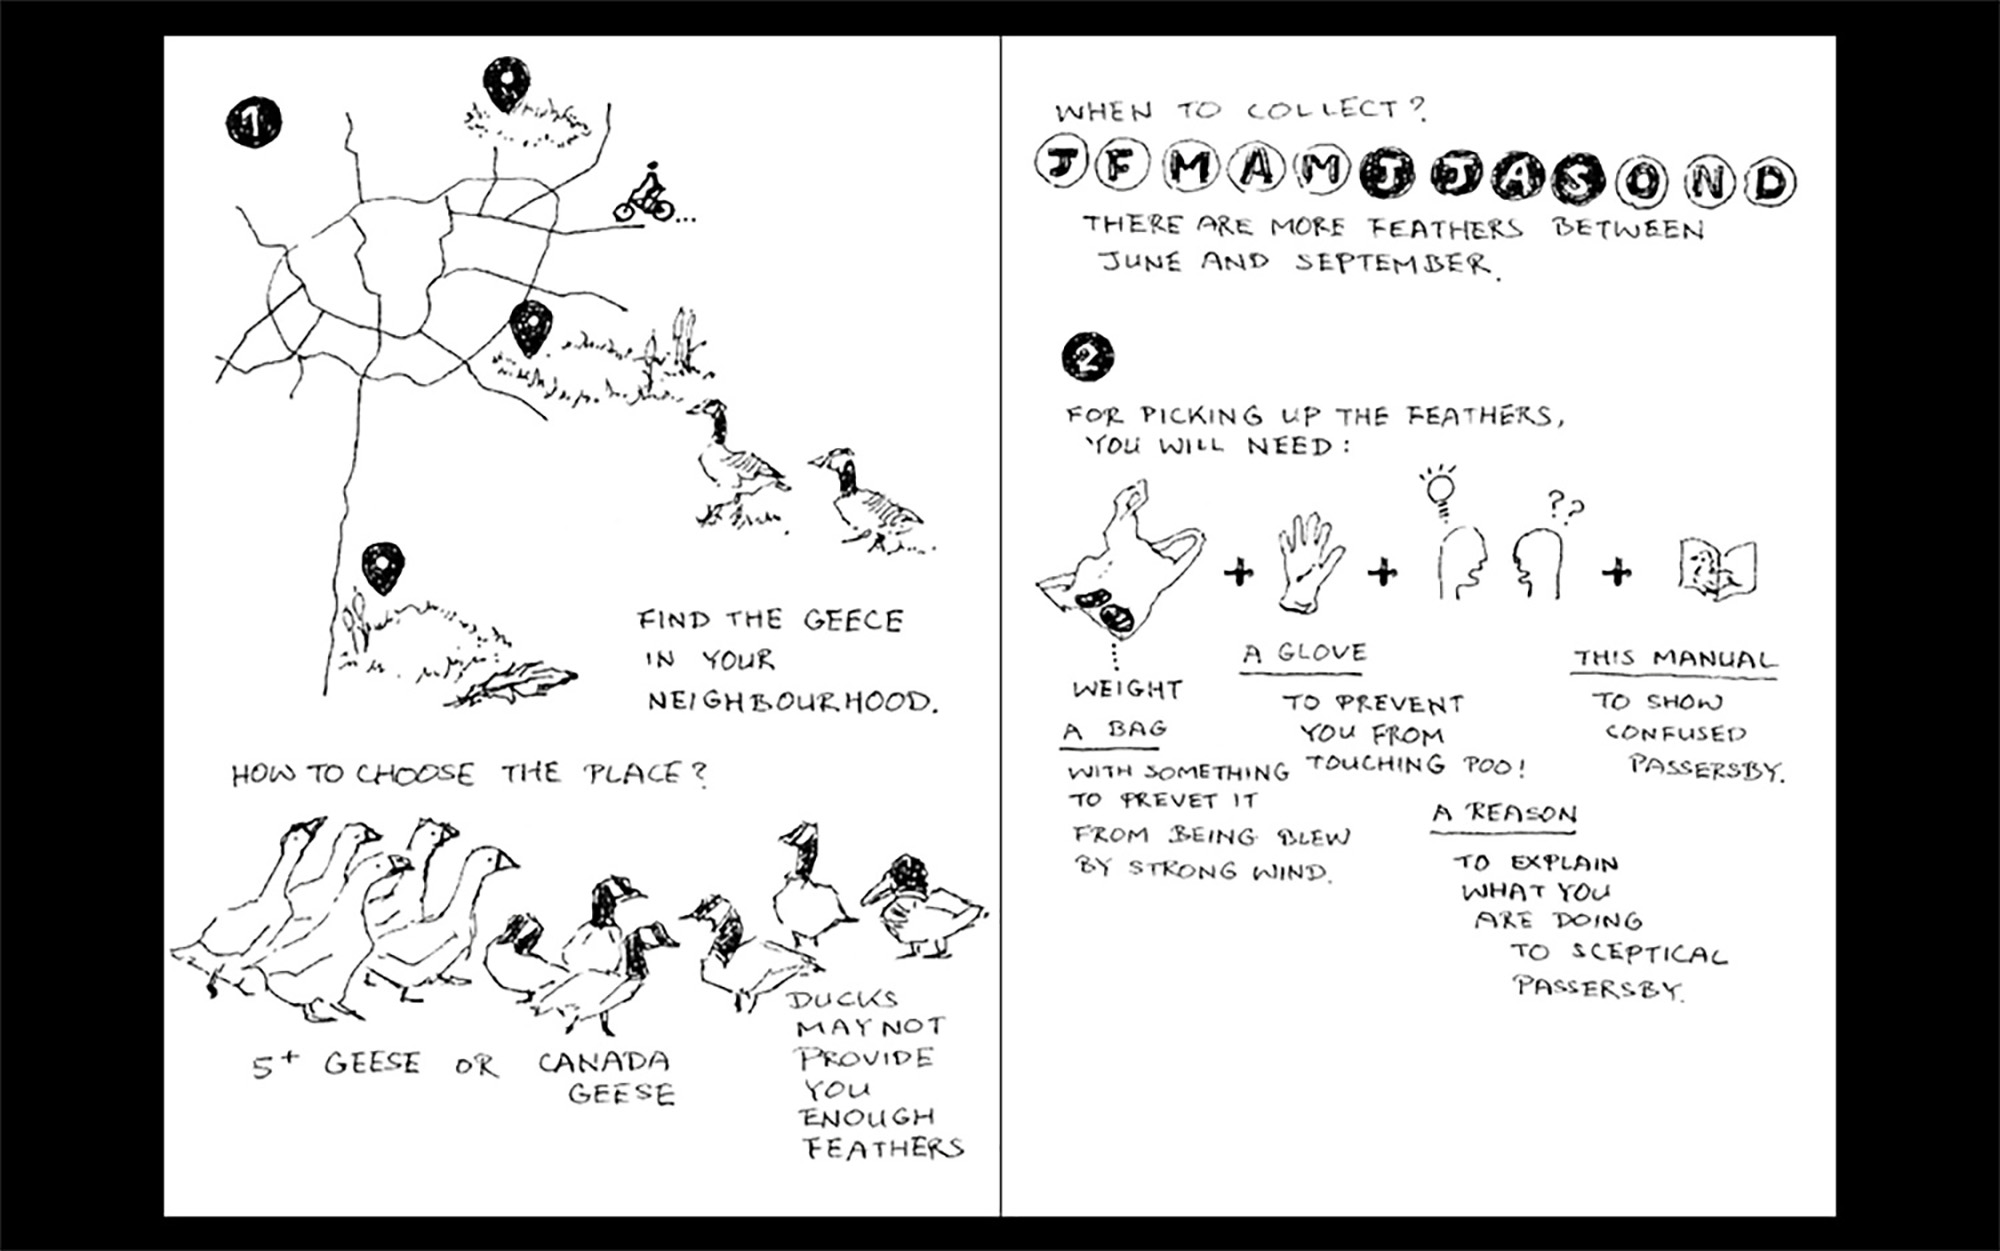 1
FIND THE GEECE
IN YOUR
NEIGHBOURHOOD.
HOW TO CHOOSE THE PLACE?
5+ GEESE OR CANADA
GEESE
DUCKS
MAY NOT
PROVIDE
YOU
ENOUGH
FEATHERS
WHEN TO COLLECT?
J F M A M J J A S O N D
THERE ARE MORE FEATHERS BETWEEN
JUNE AND SEPTEMBER.
2
FOR PICKING UP THE FEATHERS,
YOU WILL NEED:
??
+ + +
WEIGHT
A BAG
WITH SOMETHING
TO PREVET IT
FROM BEING BLEW
BY STRONG WIND.
A GLOVE
TO PREVENT
YOU FROM
TOUCHING POO!
A REASON
TO EXPLAIN
WHAT YOU
ARE DOING
TO SCEPTICAL
PASSERSBY.
THIS MANUAL
TO SHOW
CONFUSED
PASSERSBY.